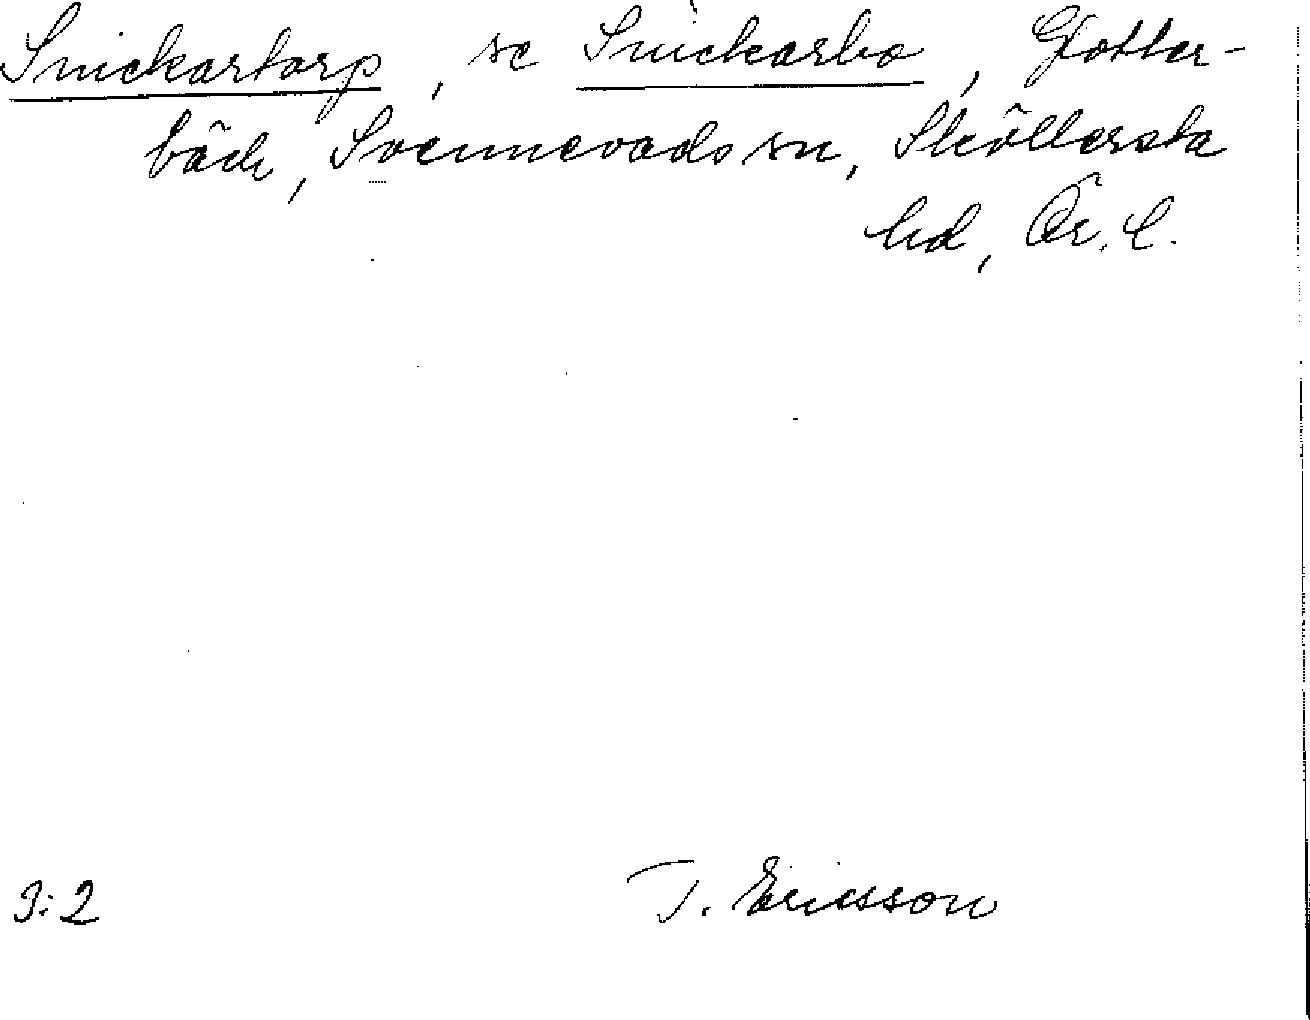 Snickartorp, se Snickarbo, Gotter-
bäck, Svennevads sn, Sköllersta
hd, Ör. l.
3:2 T. Ericsson